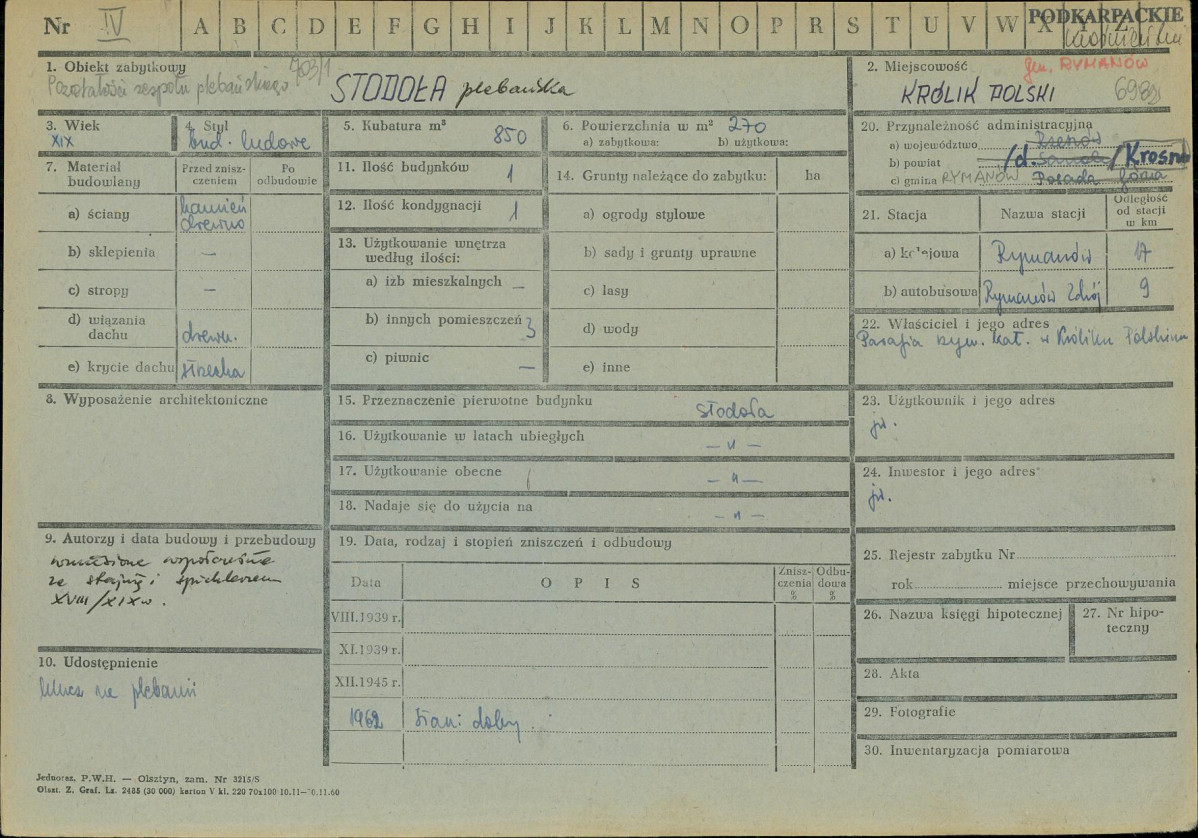 Nr IV A B C D E F G H I J K L M N O P R S T U V W X Y Z PODKARPACKIE
1. Obiekt zabytkowy 703/1
Pozostałości zespołu plebańskiego
STODOŁA plebańska
2. Miejscowość gm. RYMANÓW
KRÓLIK POLSKI
3. Wiek
XIX
4. Styl
bud. ludowe
5. Kubatura m³ 850
6. Powierzchnia w m² 270
a) zabytkowa: b) użytkowa:
20. Przynależność administracyjna
a) województwo Rzeszów
b) powiat /d. Sanok/ Krosno
c) gmina RYMANÓW Posada Górna
7. Materiał budowlany
Przed zniszczeniem
Po odbudowie
a) ściany kamień
drewno
b) sklepienia —
c) stropy —
d) wiązania dachu drewn.
e) krycie dachu strzecha
11. Ilość budynków 1
12. Ilość kondygnacji 1
13. Użytkowanie wnętrza
według ilości:
a) izb mieszkalnych —
b) innych pomieszczeń 3
c) piwnic —
14. Grunty należące do zabytku: ha
a) ogrody stylowe
b) sady i grunty uprawne
c) lasy
d) wody
e) inne
21. Stacja
Nazwa stacji
Odległość
od stacji
w km
a) kolejowa Rymanów 17
b) autobusowa Rymanów Zdrój 9
22. Właściciel i jego adres
Parafia rzym. kat. w Króliku Polskim
8. Wyposażenie architektoniczne
15. Przeznaczenie pierwotne budynku stodoła
16. Użytkowanie w latach ubiegłych — „ —
17. Użytkowanie obecne — „ —
18. Nadaje się do użycia na — „ —
23. Użytkownik i jego adres
jw.
24. Inwestor i jego adres
jw.
9. Autorzy i data budowy i przebudowy
wzniesione współcześnie
ze stajnią i spichlerzem
XVIII/XIX w.
19. Data, rodzaj i stopień zniszczeń i odbudowy
Data
O P I S
Zniszczenia
%
Odbudowa
%
VIII.1939 r.
XI.1939 r.
XII.1945 r.
1962 stan: dobry
25. Rejestr zabytku Nr
rok miejsce przechowywania
26. Nazwa księgi hipotecznej
27. Nr hipoteczny
10. Udostępnienie
klucz na plebanii
28. Akta
29. Fotografie
30. Inwentaryzacja pomiarowa
Jednoraz. P.W.H. — Olsztyn, zam. Nr 3215/S
Olszt. Z. Graf. Lz. 2485 (30 000) karton V kl. 220 70x100 10.11—30.11.60